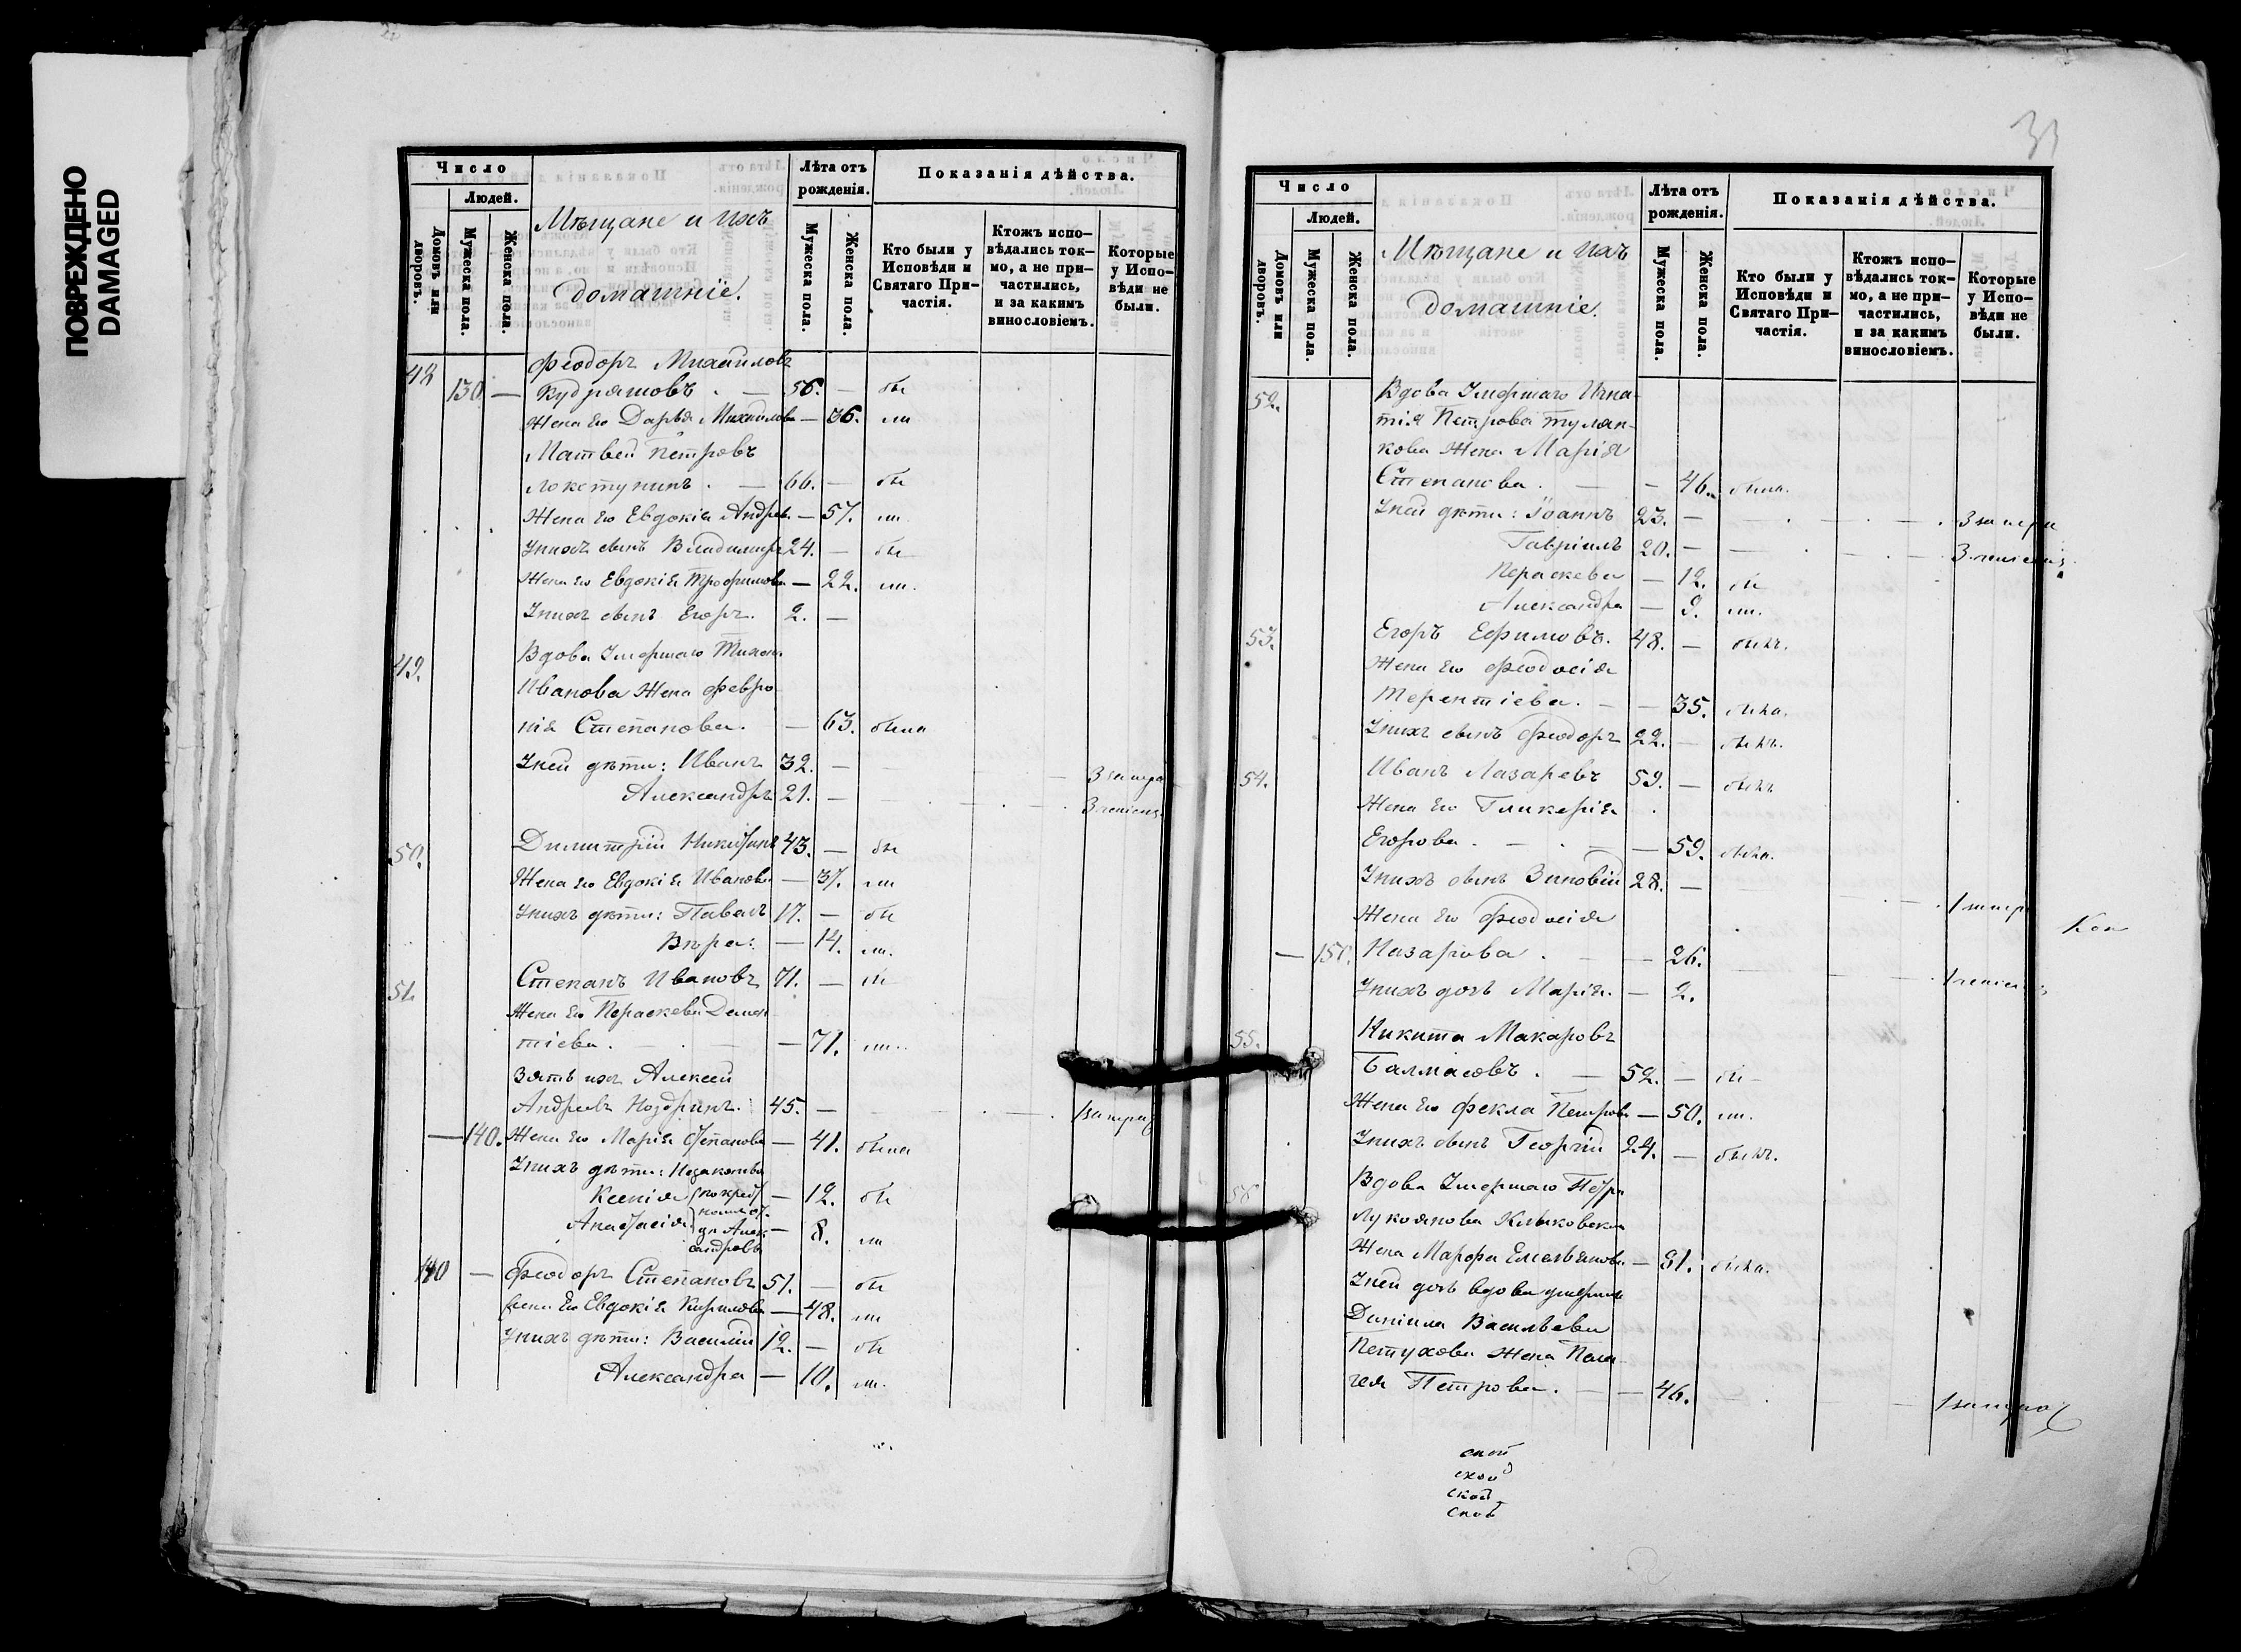 ПОВРЕЖДЕНО
DAMAGED
Число
Людей.
Домовъ или дворовъ.
Мужеска пола.
Женска пола.
Мѣщане и ихъ
домашніе.
Лѣта отъ рожденія.
Мужеска пола.
Женска пола.
Показанія дѣйства.
Кто были у Исповѣди и Святаго При-частія.
Ктожъ испо-вѣдались ток-мо, а не при-частились, и за какимъ винословіемъ.
Которые у Испо-вѣди не были.
48 Феодоръ Михайловъ
130 — Кудряшовъ . — 56. —
Жена его Дарья Михайлова — 36.
Матвей Петровъ
Локстунинъ . — 66. —
Жена его Евдокія Андрев. — 57.
У нихъ сынъ Владимиръ 24. —
Жена его Евдокія Трофимова — 22.
У нихъ сынъ Егоръ. 2. —
49. Вдова Умершаго Тихон.
Иванова Жена Февро
нія Степанова. — 63. была
У ней дѣти: Иванъ 32. —
Александръ 21. —
50. Димитрій Никитинъ 43. —
Жена его Евдокія Иванова — 37.
У нихъ дѣти: Павелъ 17. —
Вѣра: — 14.
51. Степанъ Ивановъ 71. —
Жена его Параскева Демен
тіева . — 71.
Зять ихъ Алексей
Андреевъ Ноздринъ. 45. —
— 140. Жена его Марія Степанова — 41. была
У нихъ дѣти:
Ксенія — 12.
Анастасія — 8.
140 — Феодоръ Степановъ 51. —
Жена его Евдокія Кирилова — 48.
У нихъ дѣти: Василій 12. —
Александра — 10.
31
Число
Людей.
Домовъ или дворовъ.
Мужеска пола.
Женска пола.
Мѣщане и ихъ
домашніе.
Лѣта отъ рожденія.
Мужеска пола.
Женска пола.
Показанія дѣйства.
Кто были у Исповѣди и Святаго При-частія.
Ктожъ испо-вѣдались ток-мо, а не при-частились, и за какимъ винословіемъ.
Которые у Испо-вѣди не были.
52. Вдова Умершаго Игна-
тія Петрова Тулян-
кова Жена Марія
Степанова . — 46. была.
У ней дѣти: Іоаннъ 23. —
Гавріилъ 20. —
Параскева — 12.
Александра — 9.
53. Егоръ Ефимовъ. 48. — былъ.
Жена его Феодосія
Терентіева. — 35. была.
У нихъ сынъ Феодоръ 22. — былъ.
54. Иванъ Лазаревъ 59. — былъ
Жена его Гликерія
Егорова . — 59. была.
У нихъ сынъ Зиновій 28. —
Жена его Феодосія
— 150. Назарова . — 26.
У нихъ дочь Марія. — 2.
55. Никита Макаровъ
Балмасовъ . — 52. —
Жена его Фекла Петрова — 50.
У нихъ сынъ Георгій 24. — былъ.
56 Вдова Умершаго Петра
Лукоянова
Жена Марфа Емельянова — 81. была.
У ней дочь вдова умерша
Даніила Васильева
Петухова Жена Пела
гея Петрова. — 46.